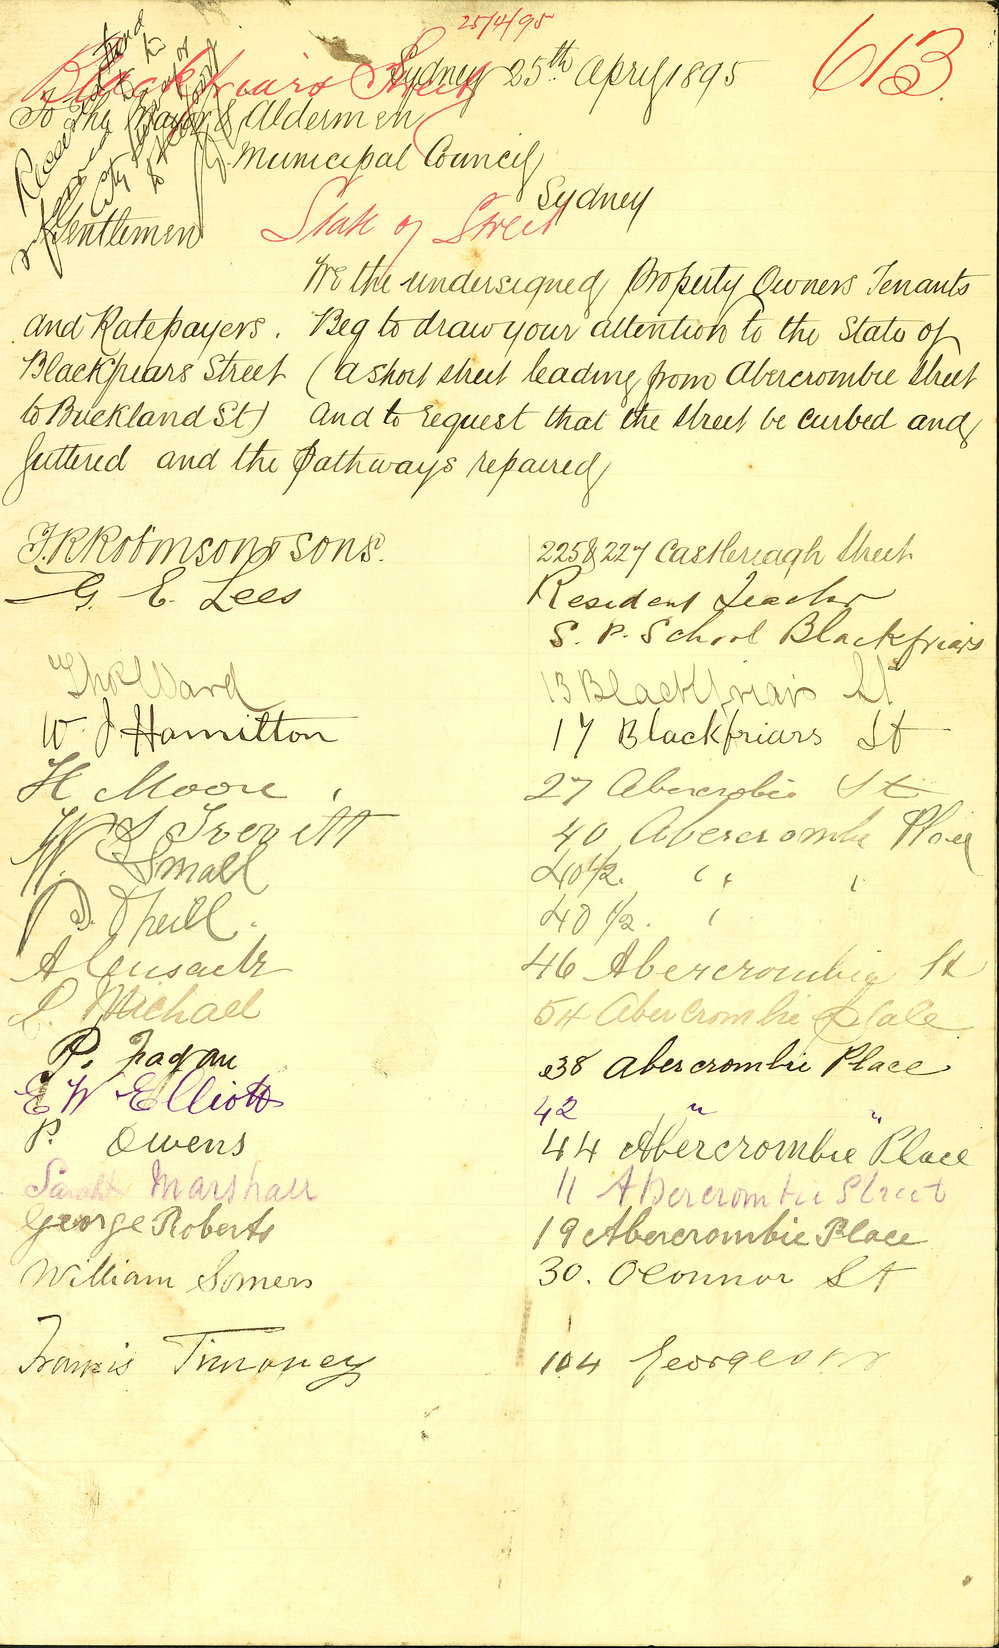 25/4/95
613
Blackfriars Street
Sydney 25th April 1895
To The Mayor & Aldermen
Municipal Council
Sydney
State of Street
Gentlemen
We the undersigned Property Owners Tenants
and Ratepayers. Beg to draw your attention to the State of
Blackfriars Street (a short street leading from Abercrombie Street
to Buckland St) and to request that the street be curbed and
guttered and the pathways repaired
F.R Robinson & Sons. 225 & 227 Castlereagh Street
G. E. Lees Resident Teacher
S. P. School Blackfriars
Thos Ward 13 Blackfriars St
W. J Hamilton 17 Blackfriars St
H Moore 27 Abercrobie St
W S 40 Abercrombie Place
W. Small 40 1/2. " "
40 1/2. "
A 46 Abercrombie St
Michael 54 Abercrombie Place
P. Fagan 38 Abercrombie Place
E W Elliott 42 " "
P. Owens 44 Abercrombie Place
Sarah Marshall 11 Abercrombie Street
George Roberts 19 Abercrombie Place
William Somers 30. OConnor St
Francis Timoney 104 George